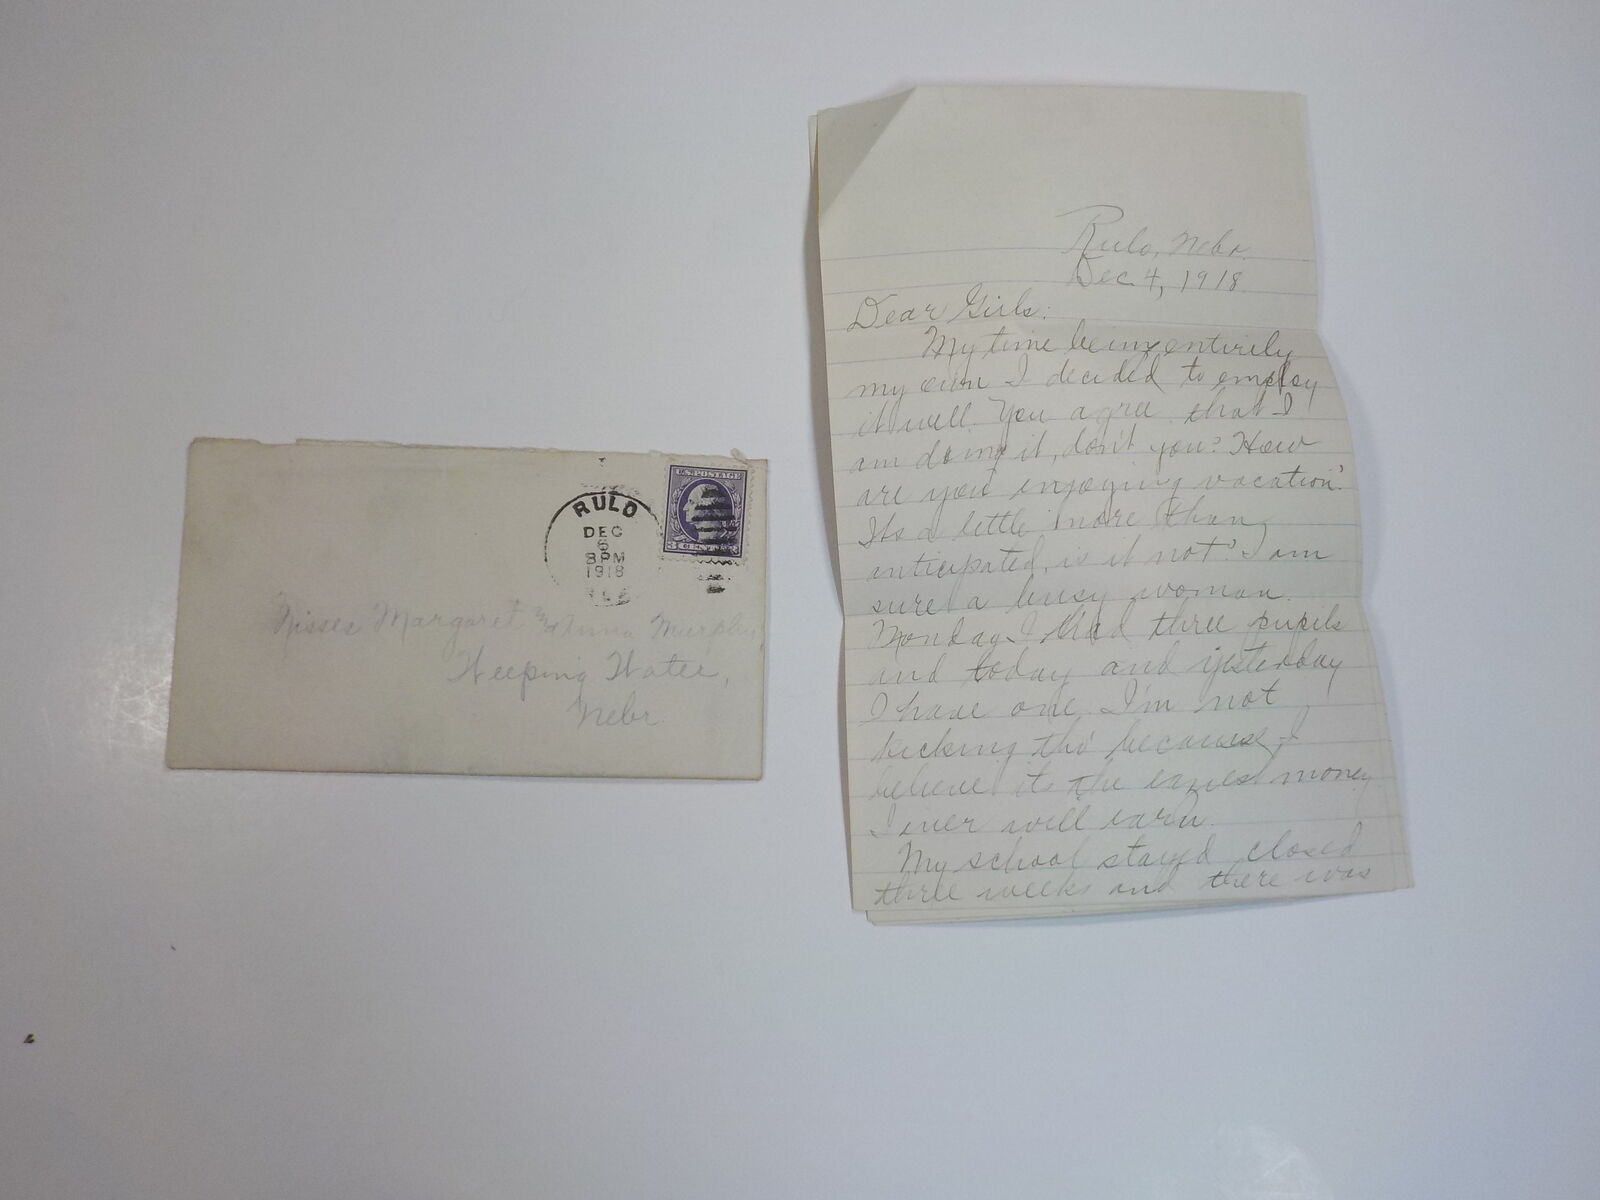 RULO
DEC
6
8PM
1918
U.S. POSTAGE
3 CENTS 3
Misses Margaret and Anna Murphy,
Weeping Water,
Nebr.
Rulo, Nebr.
Dec. 4, 1918
Dear Girls:
My time being entirely
my own I decided to employ
it well. You agree that I
am doing it, don't you? How
are you enjoying vacation?
Its a little more than
anticipated, is it not? I am
sure a busy woman.
Monday I had three pupils
and today and yesterday
I have one. I'm not
kicking tho' because I
believe its the easiest money
I ever will earn.
My school stayed closed
three weeks and there was